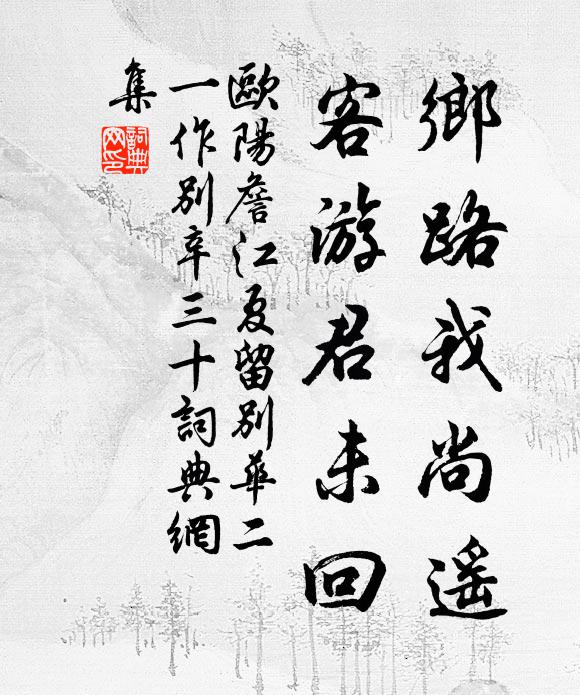 鄉路我尚遥
客游君未回
歐陽詹江夏留別華二
一作別辛三十詞典網
集
詞典
网印